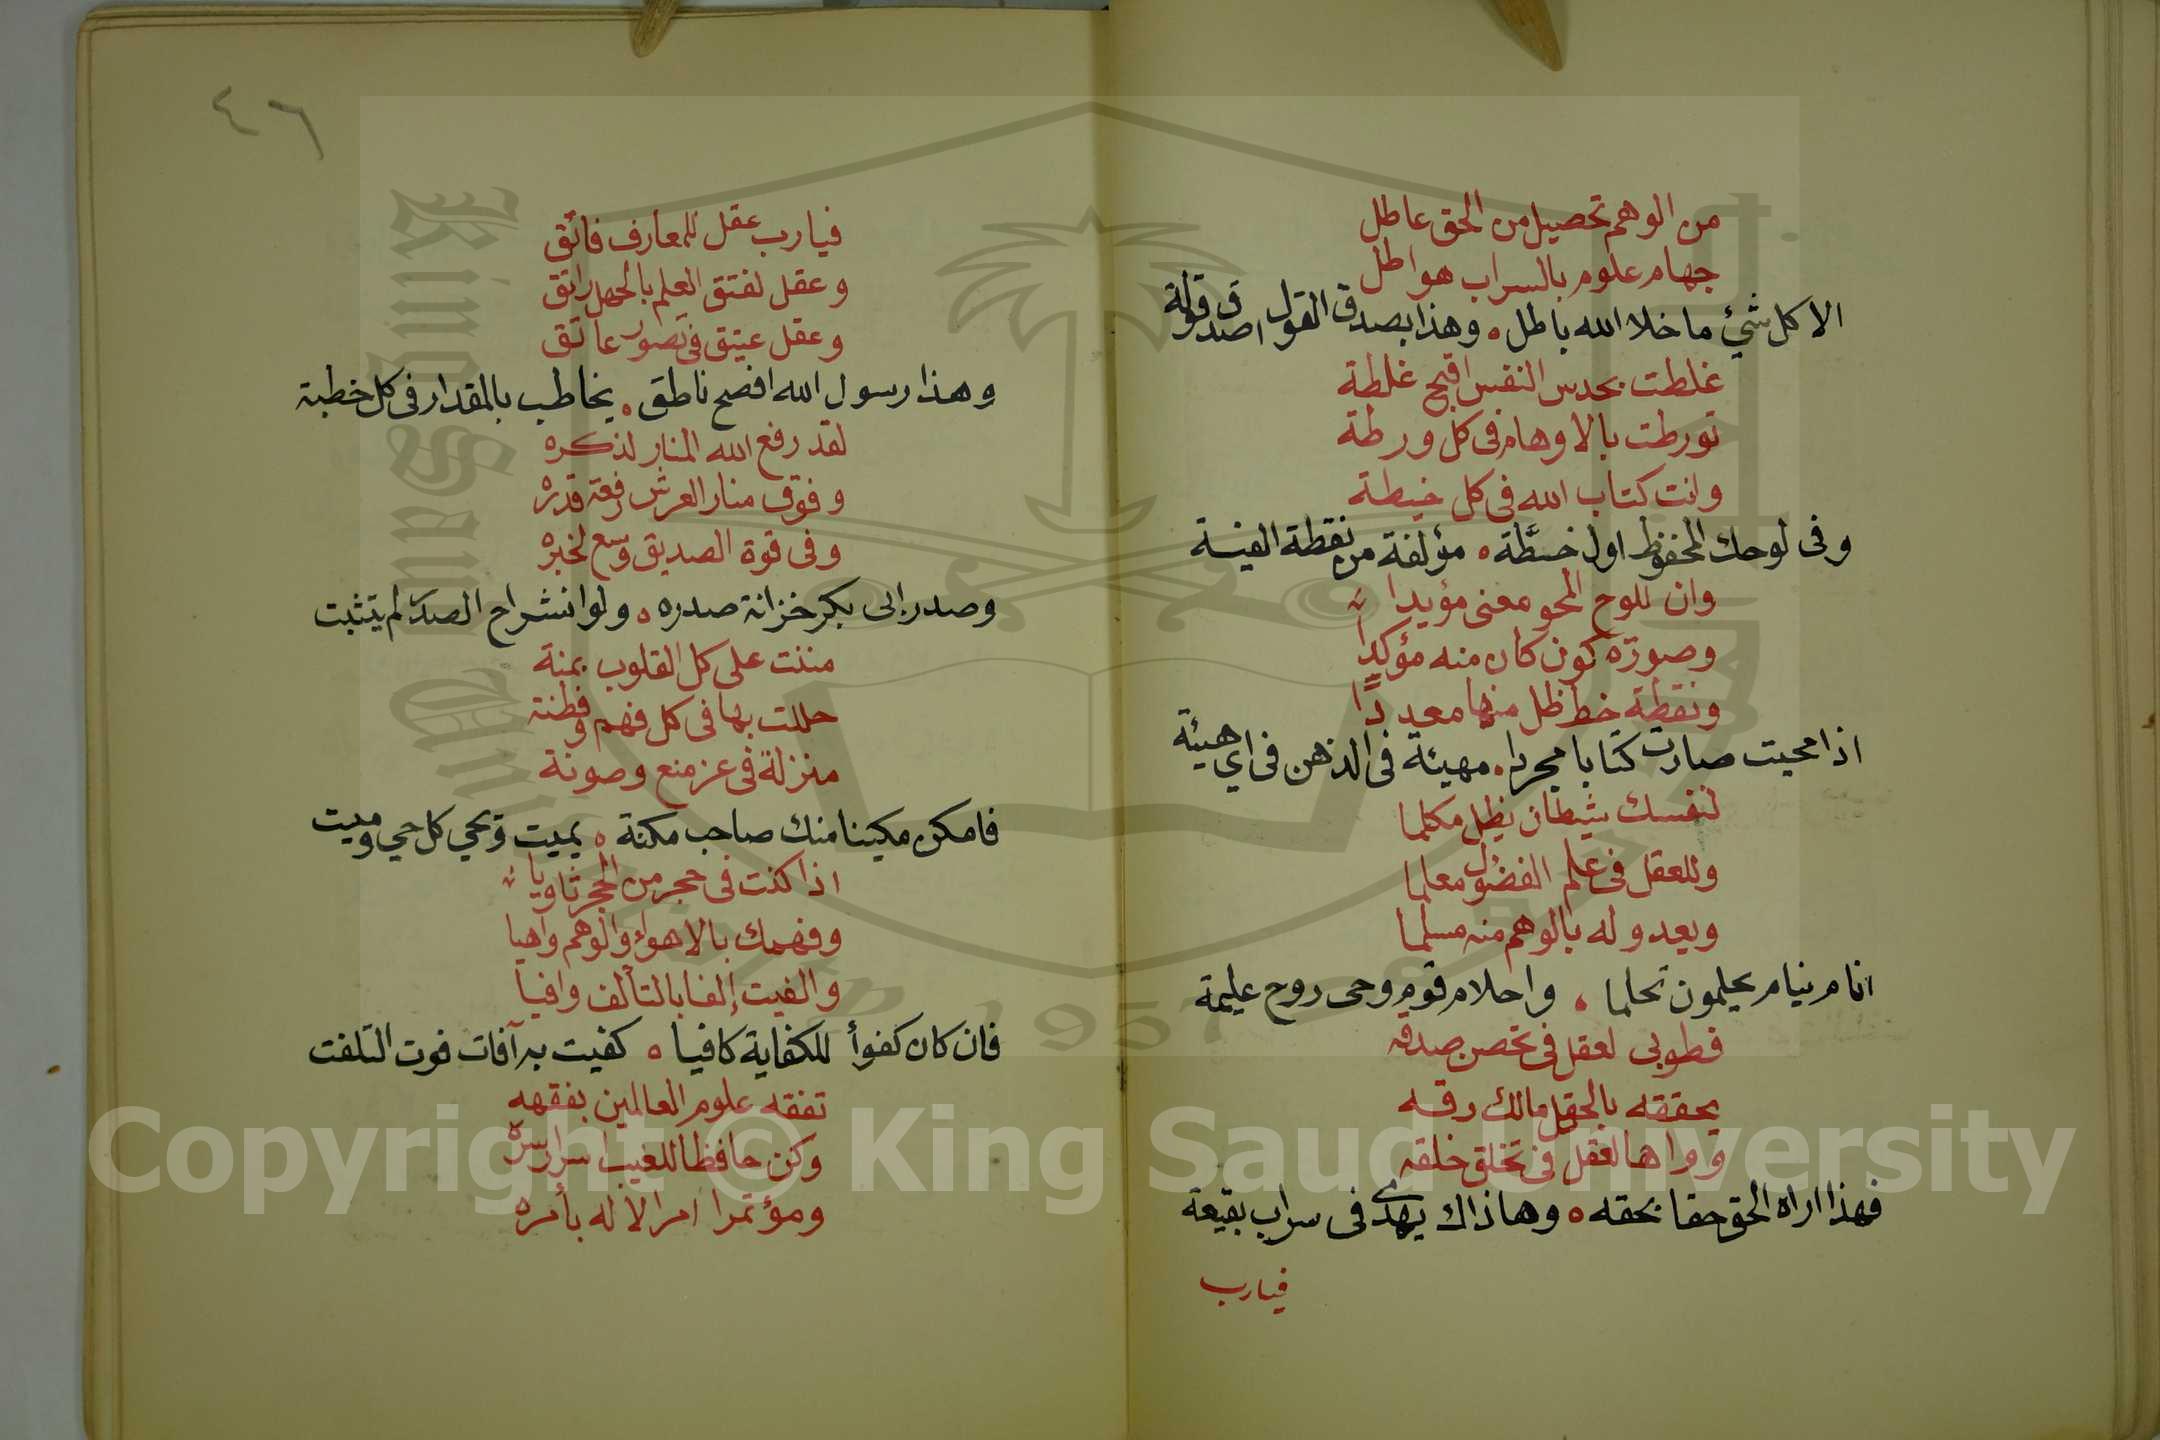 من الوهم تحصيل من الحق عاطل
جهام علوم بالسراب هواطل
الا كل شئ ما خلا الله باطل ه وهذا بصدق القول اصدق قولة
غلطت بحدس النفس اقبح غلطة
تورطت بالاوهام فى كل ورطة
وانت كتاب الله فى كل خيطة
وفى لوحك المحفوظ اول خطة ه مؤلفة من نقطة الفية
وان للوح المحو معنى مؤيدا
وصورة كون كان منه مؤكدا
ونقطة خط ظل منها معددًا
اذا محيت صارت كتابا مجردا ه مهيئة فى الذهن فى اى هيئة
لنفسك شيطان يظل مكلما
وللعقل فى علم الفضول معلما
ويعدو له بالوهم منه مسلما
انام نيام يحلمون تحلما ه واحلام قوم وحى روح عليمة
فطوبى لعقل فى تخصن صدقه
يحققه بالحق مالك رقه
وواها لعقل فى تخلق خلقه
فهذا اراه الحق حقا بحقه ه وهاذاك يهذى فى سراب بقيعة
فيارب
٤٦
فيارب عقل للمعارف فائق
وعقل لفتق العلم بالجهل راتق
وعقل عتيق فى تصور عاتق
وهذا رسول الله افصح ناطق ه يخاطب بالمقدار فى كل خطبة
لقد رفع الله المنار لذكره
وفوق منار العرش رفعة قدره
وفى قوة الصديق وسع لخبره
وصدر إبى بكر خزانة صدره ه ولو انشراح الصدر لم يتثبت
مننت على كل القلوب بمنة
حللت بها فى كل فهم وفطنة
منزلة فى عز منع وصونة
فامكن مكينا منك صاحب مكنة ه يميت ويحي كل حي وميت
اذا كنت فى حجر من الحجر ثاويا
وفهمك بالاهواء والوهم واهيا
والفيت إلفا بالتألف وافيا
فان كان كفوأ للكفاية كافيا ه كفيت به آفات فوت التلفت
تفقه علوم العالمين بفقهه
وكن حافظا للغيب اسرار سره
ومؤتمرا امر الاله بأمره
King Saud University
1957
Copyright © King Saud University